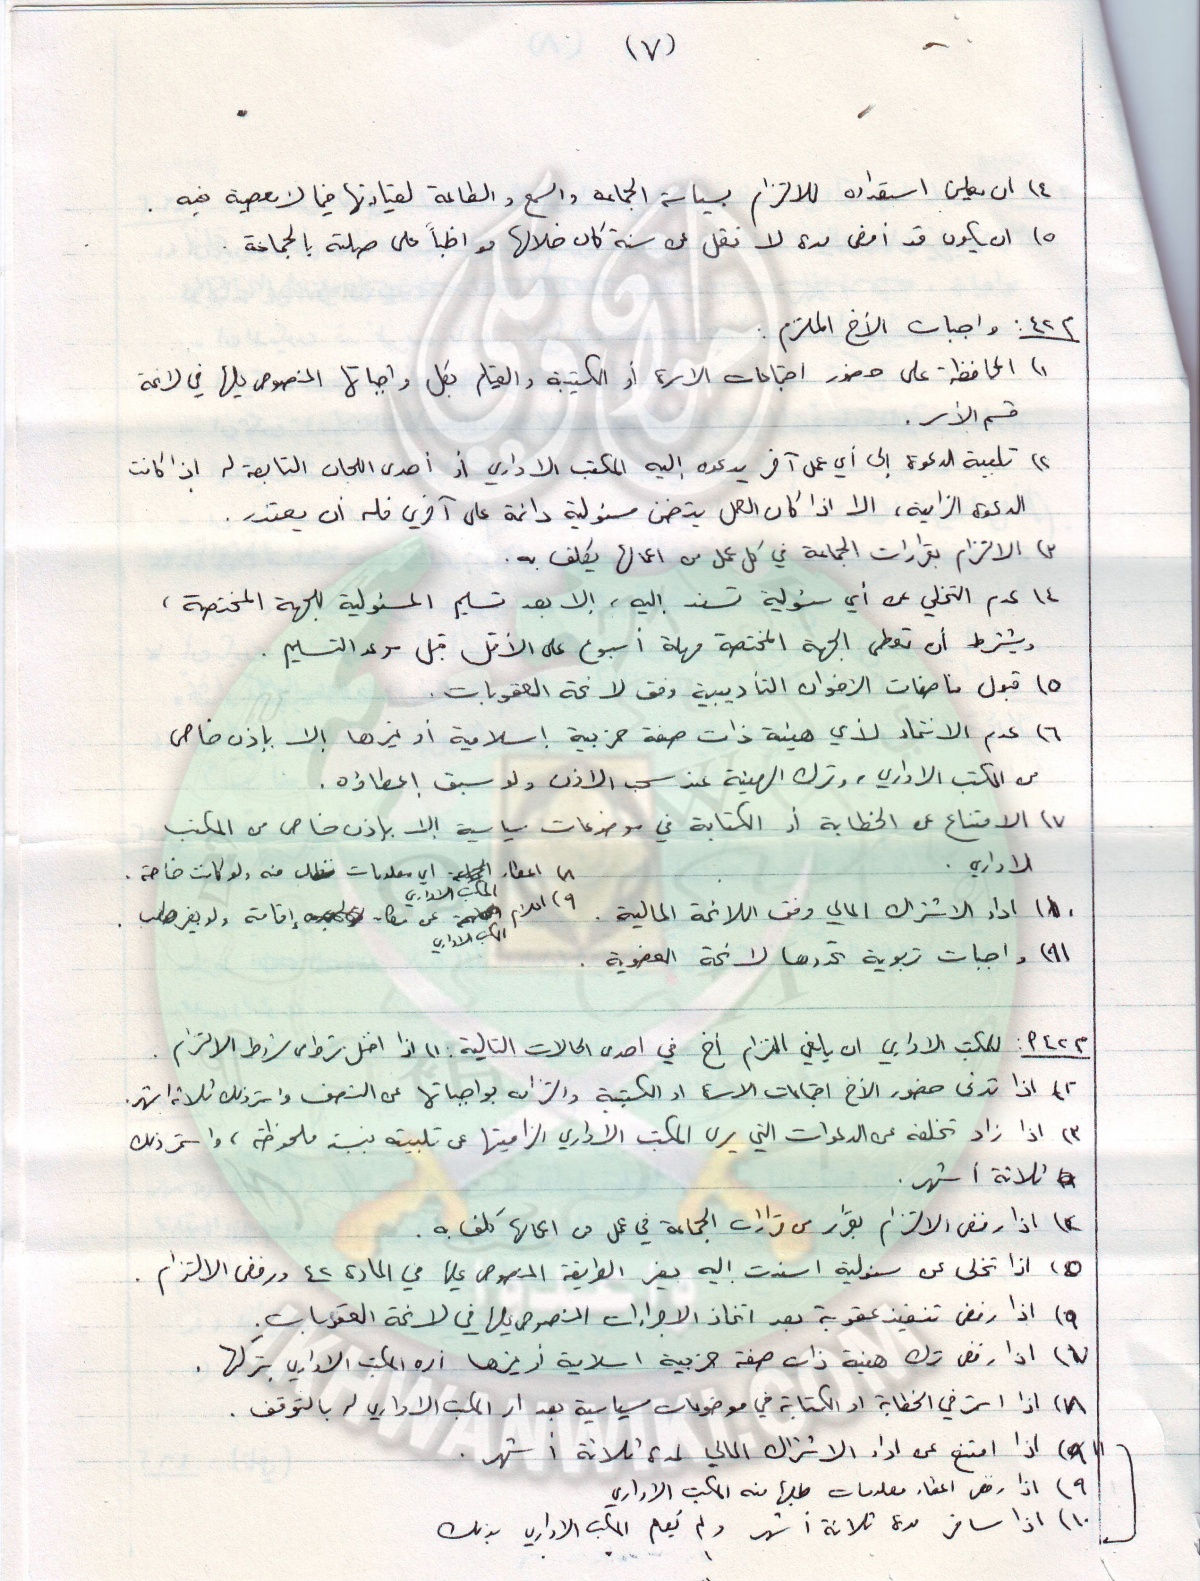 (٧)
٤) ان يعلن استعداده للالتزام بسياسة الجماعة والسمع والطاعة لقيادتها فيما لا معصية فيه .
٥) ان يكون قد أمضى مدة لا تقل عن سنة كان خلالها مواظباً على صلته بالجماعة .
م٤٢: واجبات الأخ الملتزم :
١) المحافظة على حضور اجتماعات الاسرة أو الكتيبة والقيام بكل واجباتها المنصوص عليها في لائحة
قسم الأسر .
٢) تلبية الدعوة إلى أي عمل آخر يدعوه إليه المكتب الاداري أو أحدى اللجان التابعة له إذا كانت
الدعوة الزامية، الا اذا كان العمل يتضمن مسئولية دائمة على آخرين فله أن يعتذر .
٣) الالتزام بقرارات الجماعة في كل عمل من اعمالها يكلف به .
٤) عدم التخلي عن أي مسئولية تسند إليه، إلا بعد تسليم المسئولية للجهة المختصة ،
ويشترط أن تعطى الجهة المختصة مهلة أسبوع على الأقل قبل موعد التسليم .
٥) قبول مناصفات الاخوان التأديبية وفق لائحة العقوبات .
٦) عدم الانتماء لأي هيئة ذات صفة حزبية إسلامية أو غيرها إلا بإذن خاص
من المكتب الاداري، وترك الهيئة عند سحب الاذن ولو سبق إعطاؤه .
٧) الامتناع عن الخطابة أو الكتابة في موضوعات سياسية إلا بإذن خاص من المكتب
الاداري .
٨) اعطاء أي معلومات تطلب منه ولو كانت خاصة .
المكتب الاداري
٩) اعلام عن مكان إقامته ولو بغير طلب .
المكتب الاداري
١٠) اداء الاشتراك المالي وفق اللائحة المالية .
١١) واجبات تربوية تحددها لائحة العضوية .
م٤٣: للمكتب الاداري ان يلغي التزام أخ في احدى الحالات التالية : ١) اذا اختل شرط من شروط الالتزام .
٢) اذا تدنى حضور الأخ اجتماعات الاسرة او الكتيبة والتزامه بواجباتها عن النصف واستمر ذلك ثلاثة اشهر.
٣) اذا زاد تخلفه عن الدعوات التي يرى المكتب الاداري الزاميتها عن تلبيته بنسبة ملحوظة، واستمر ذلك
ثلاثة أشهر .
٤) اذا رفض الالتزام بقرار من قرارات الجماعة في عمل من اعمالها كلف به .
٥) اذا تخلى عن مسئولية اسندت إليه بغير الطريقة المنصوص عليها في المادة ٤٢ ورفض الالتزام .
٦) اذا رفض تنفيذ عقوبة بعد اتخاذ الاجراءات المنصوص عليها في لائحة العقوبات .
٧) اذا رفض ترك هيئة ذات صفة حزبية اسلامية أو غيرها أمره المكتب الاداري بتركها .
٨) اذا استمر في الخطابة او الكتابة في موضوعات سياسية بعد امر المكتب الاداري له بالتوقف .
١١) اذا امتنع عن اداء الاشتراك المالي لمدة ثلاثة أشهر .
٩) اذا رفض اعطاء معلومات طلبها منه المكتب الاداري
١٠) اذا سافر مدة ثلاثة أشهر ولم يُعلم المكتب الاداري بذلك
IKHWANWIKI.COM